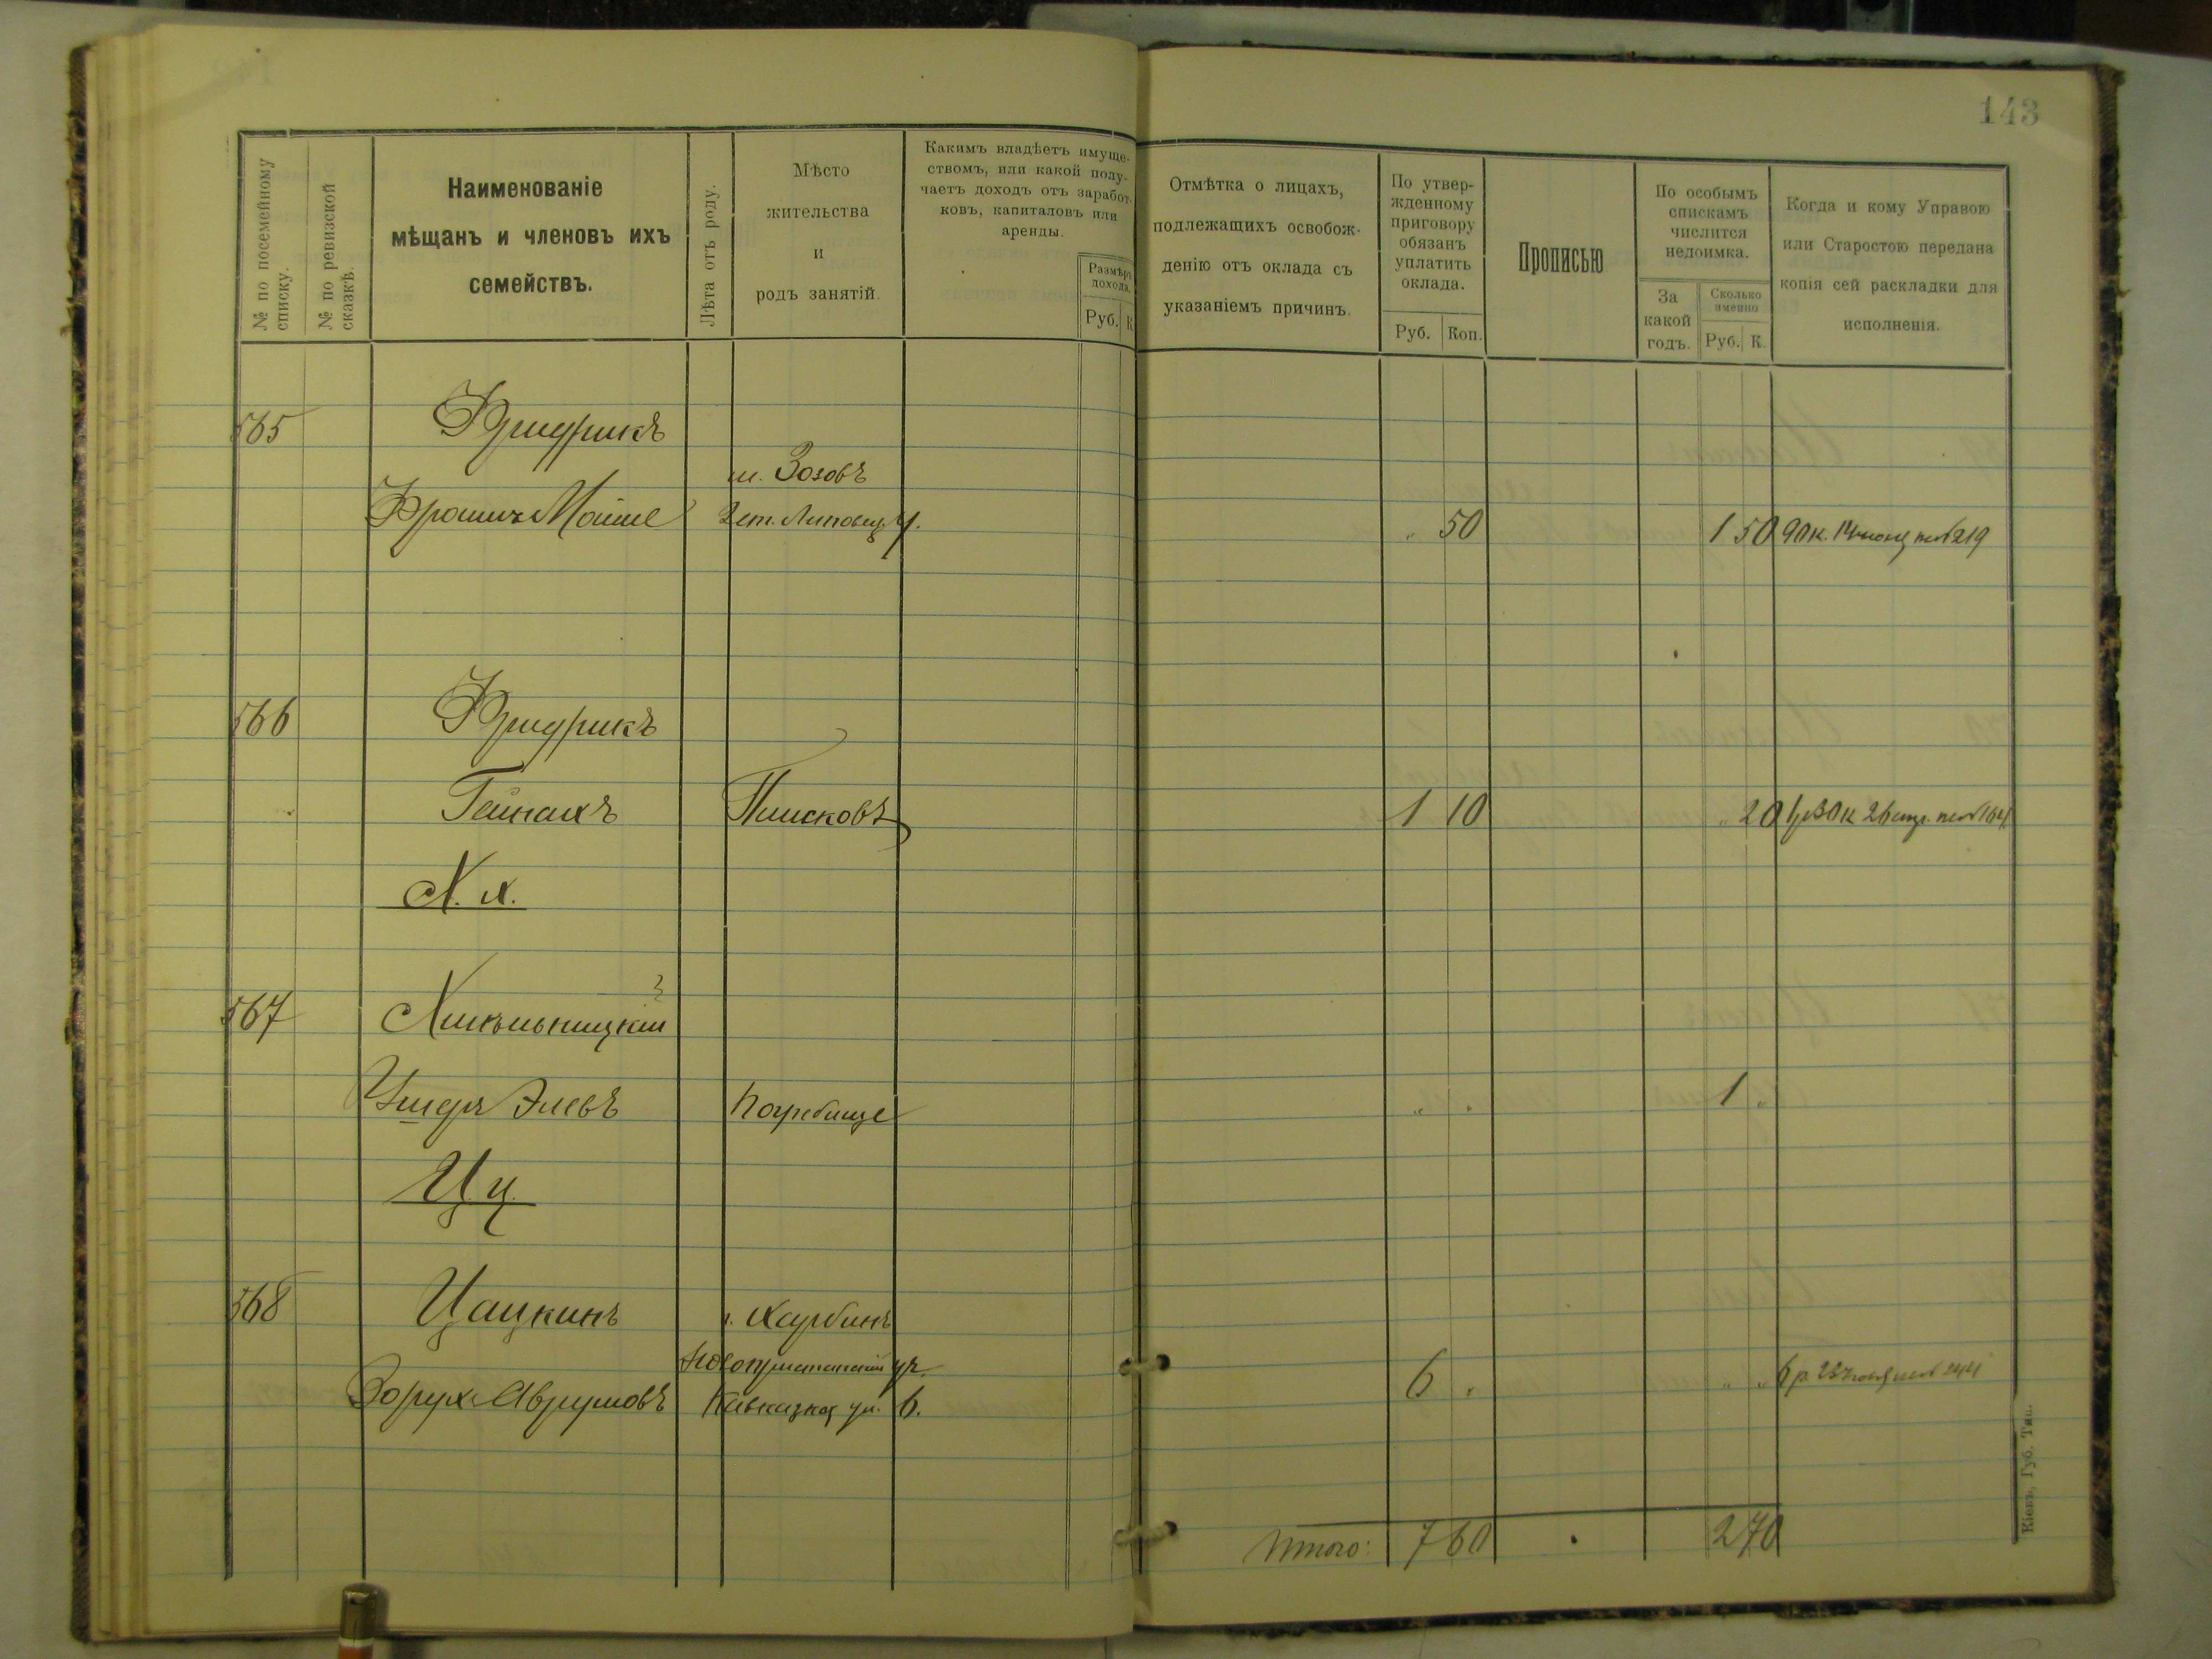 143
№ по посемейному
списку.
№ по ревизской
сказкѣ.
Наименованіе
мѣщанъ и членовъ ихъ
семействъ.
Лѣта отъ роду.
Мѣсто
жительства
и
родъ занятій.
Какимъ владѣетъ имуще-
ствомъ, или какой полу-
чаетъ доходъ отъ заработ-
ковъ, капиталовъ или
аренды.
Размѣръ
дохода.
Руб. К.
Отмѣтка о лицахъ,
подлежащихъ освобож-
денію отъ оклада съ
указаніемъ причинъ.
По утвер-
жденному
приговору
обязанъ
уплатить
оклада.
Руб. Коп.
Прописью
По особымъ
спискамъ
числится
недоимка.
За
какой
годъ.
Сколько
именно
Руб. К.
Когда и кому Управою
или Старостою передана
копія сей раскладки для
исполненія.
565 Фридрикъ
м. Зозовъ
Фроимъ Мошие 2 ст. Липовец. у. " 50 1 50 90 к. 14 219
566 Фридрикъ
Гейнахъ Плисковъ 1 10 " 20 1 р 30 к 26 апр. 164
Х. х.
567 Хмельницкій
Ушеръ Элевъ Погребище " " 1 "
Ц ц.
568 Цацкинъ г. Харбинъ
Новопристанскій ур.
Борух Аврумовъ Кавказкая ул. 6. 6 " " " 6 р. 23 244
Итого: 7 60 2 70
Кіевъ, Губ. Тип.